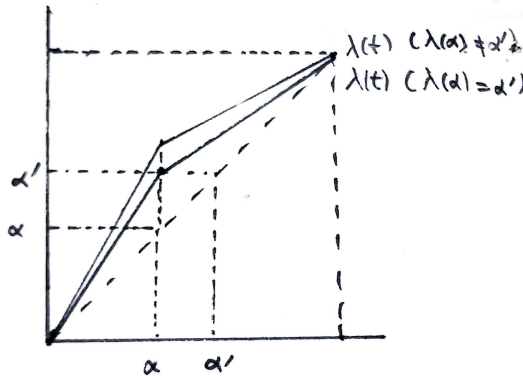 λ(t) (λ(α) ≠ α')
λ(t) (λ(α) = α')
α'
α
α α'